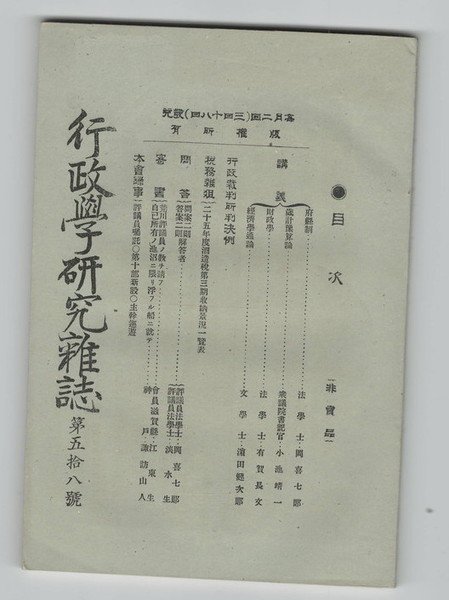 行政學研究雜誌
第五拾八號
版權所有
●目次
(非賣品)
講義
府縣制
法學士 岡喜七郎
歲計豫算論
衆議院書記官 小池靖一
財政學
法學士 有賀長文
經濟學通論
文學士 濱田健次郎
行政裁判所判決例
稅務雜俎
二十五年度酒造稅第三期收納景況一覽表
問答
問案二則
答案二則解答者
評議員法學士 岡喜七郎
評議員法學士
寄書
荒川評議員ノ敎ヲ請フ
會員滋賀縣 江東生
自己所有ノ池沼ニ限リ浮フル船ニ就テ
神戶 諏訪山人
本會記事
評議員囑託○第十部新設○主幹巡遊